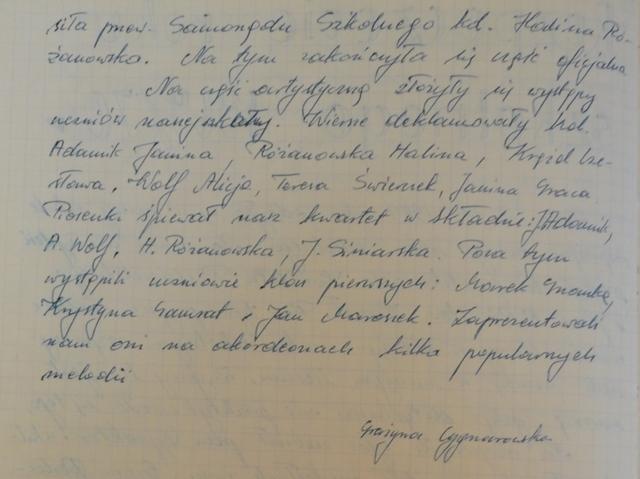 siła przew. Samorządu Szkolnego kol. Halina Ró-
żanowska. Na tym zakończyła się część oficjalna
Na część artystyczną złożyły się występy
uczniów naszej szkoły. Wiersze deklamowały kol.
Adamik Janina, Różanowska Halina, Krężel Cze-
sława, Wolf Alicja, Teresa Świerszek, Janina Graca
Piosenki śpiewał nasz kwartet w składzie: J. Adamik,
A. Wolf, H. Różanowska, J. Siniarska. Poza tym
wystąpili uczniowie klas pierwszych: Marek
Krystyna Samsat i Jan Marosek. Zaprezentowali
nam oni na akordeonach kilka popularnych
melodii
Grażyna